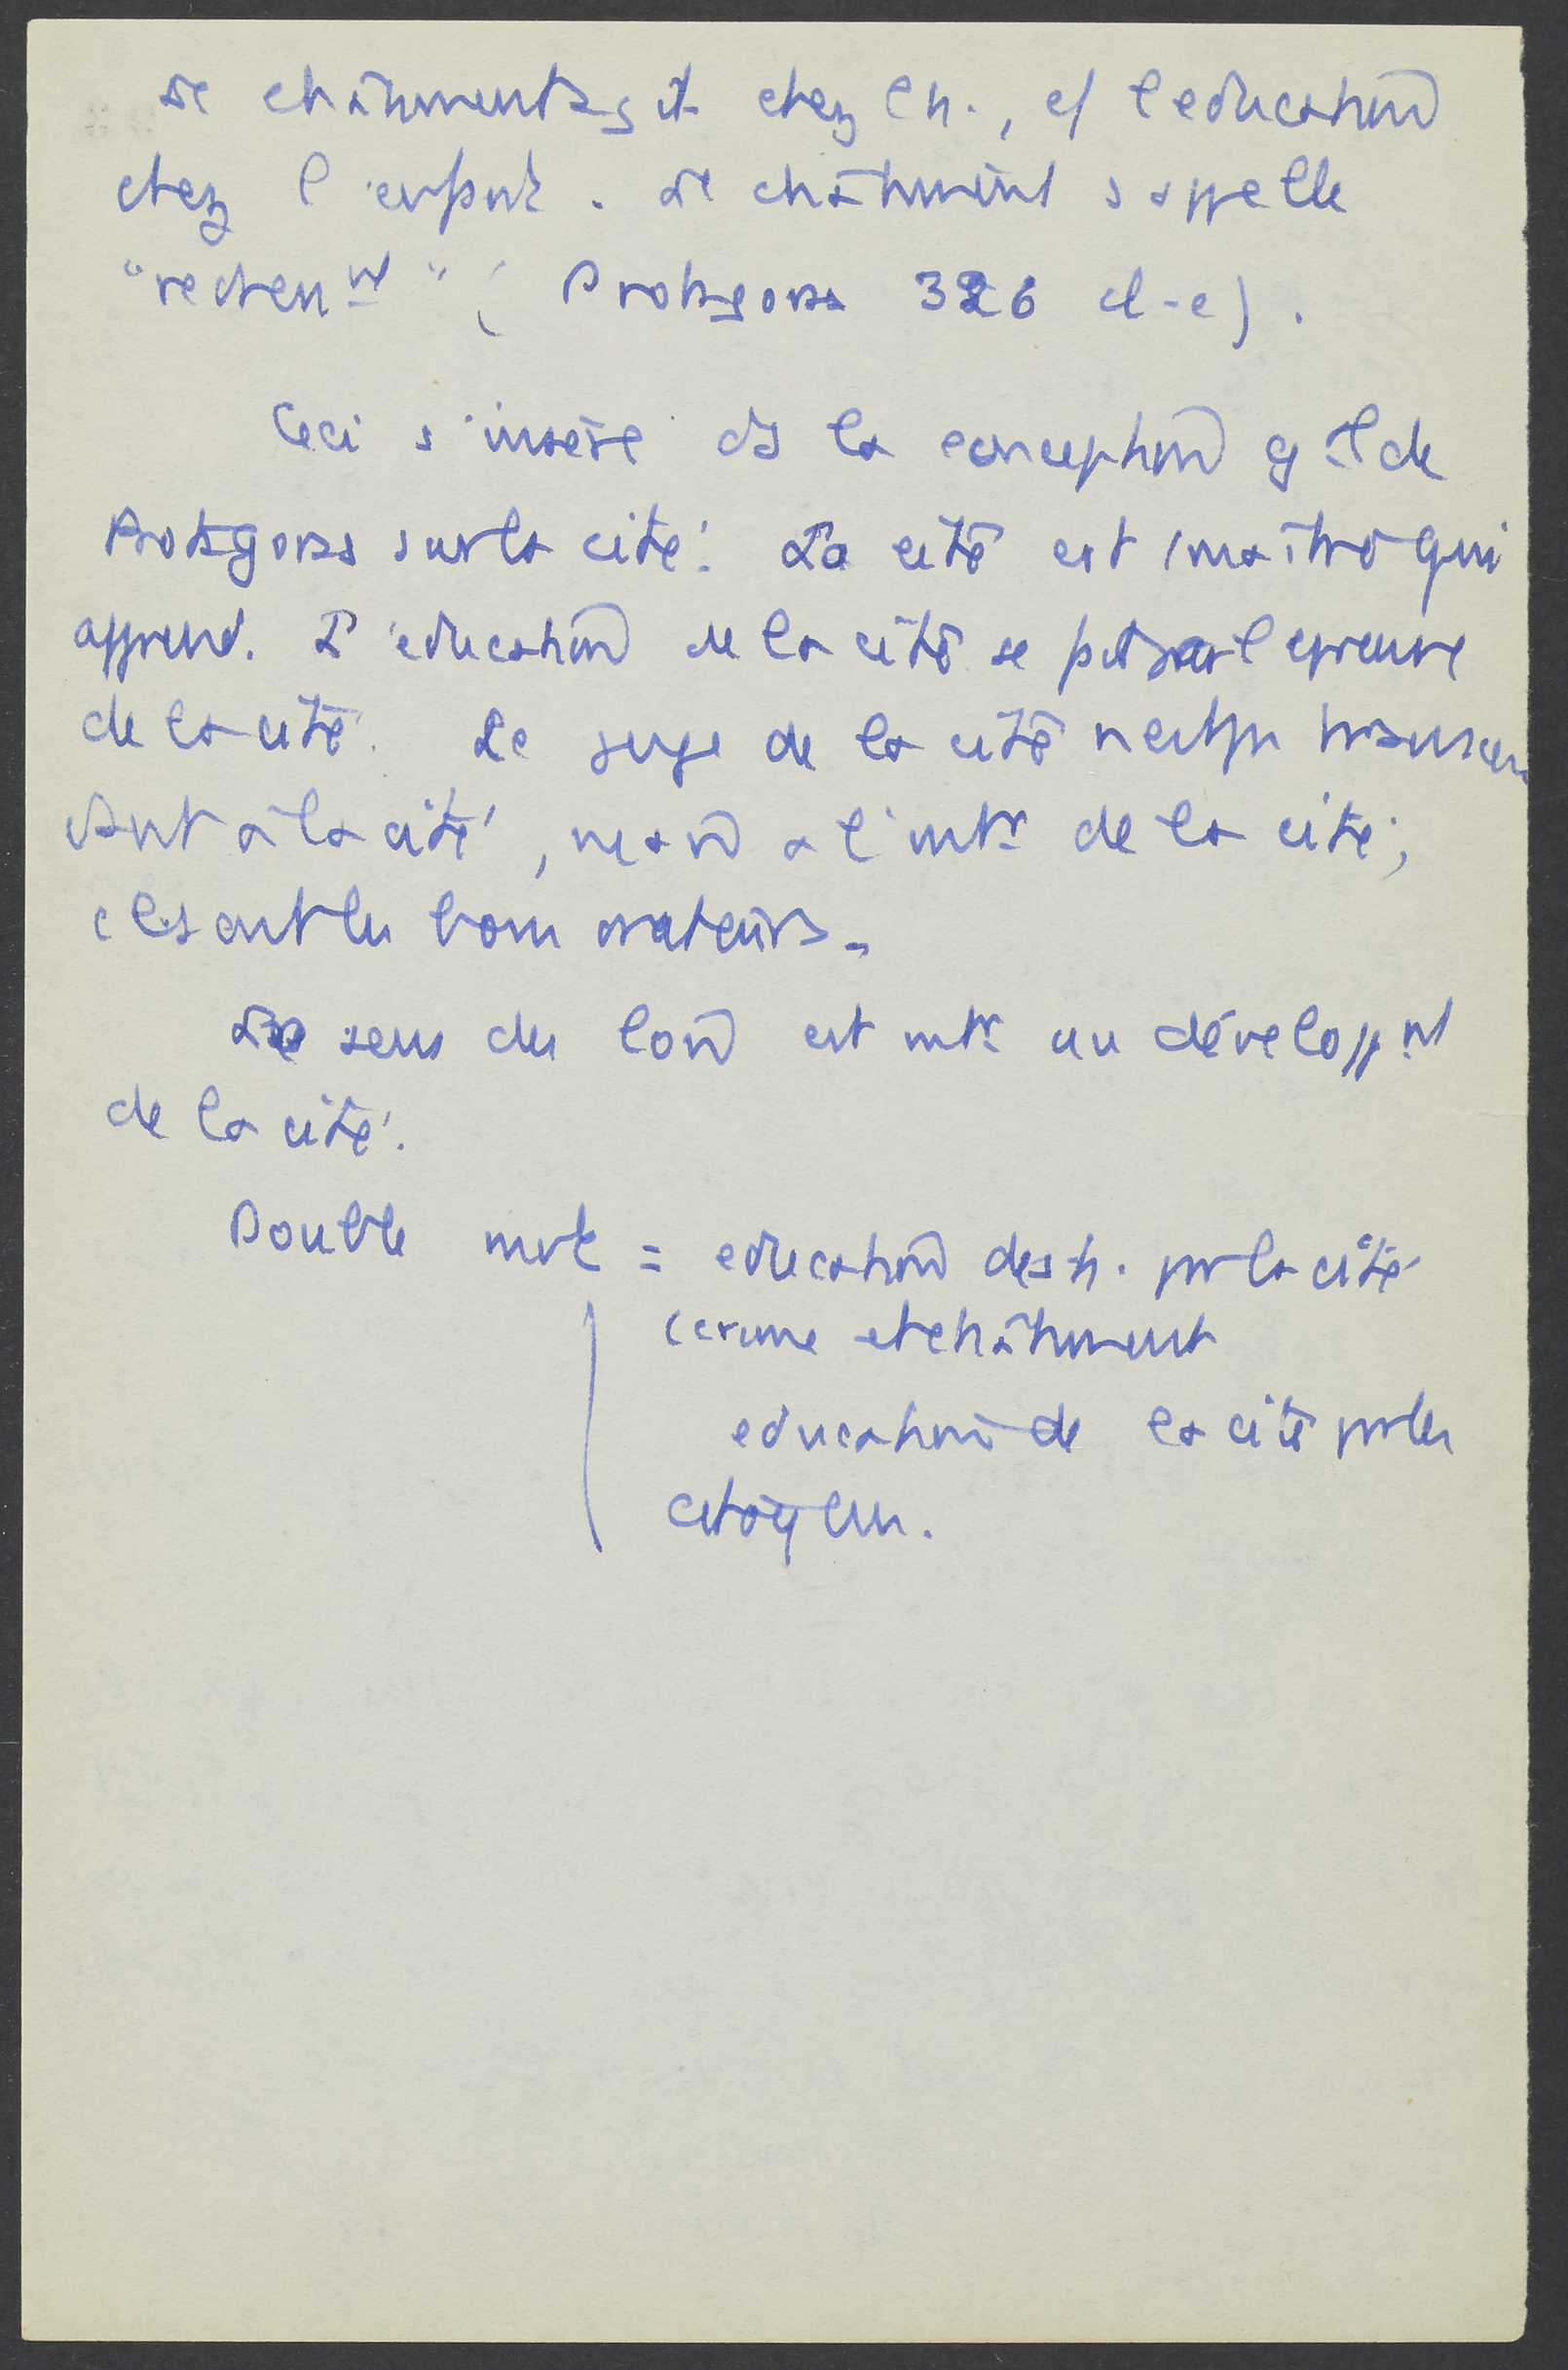 Le châtiment agit chez l'h., c/ l'éducation
chez l'enfant. Le châtiment s'appelle
"redressnt" (Protagoras 326 d-e).
Ceci s'insère ds la conception gale de
Protagoras sur la cité: La cité est 1 maître qui
apprend. L'éducation de la cité se fait par l'épreuve
de la cité. Le juge de la cité n'est pas transcen
dant à la cité, mais à l'intr de la cité;
ce sont les bons orateurs.
Le sens des lois est intr au développnt
de la cité.
Double = éducation des h. par la cité
(crime et châtiment
éducation de la cité par les
citoyens.